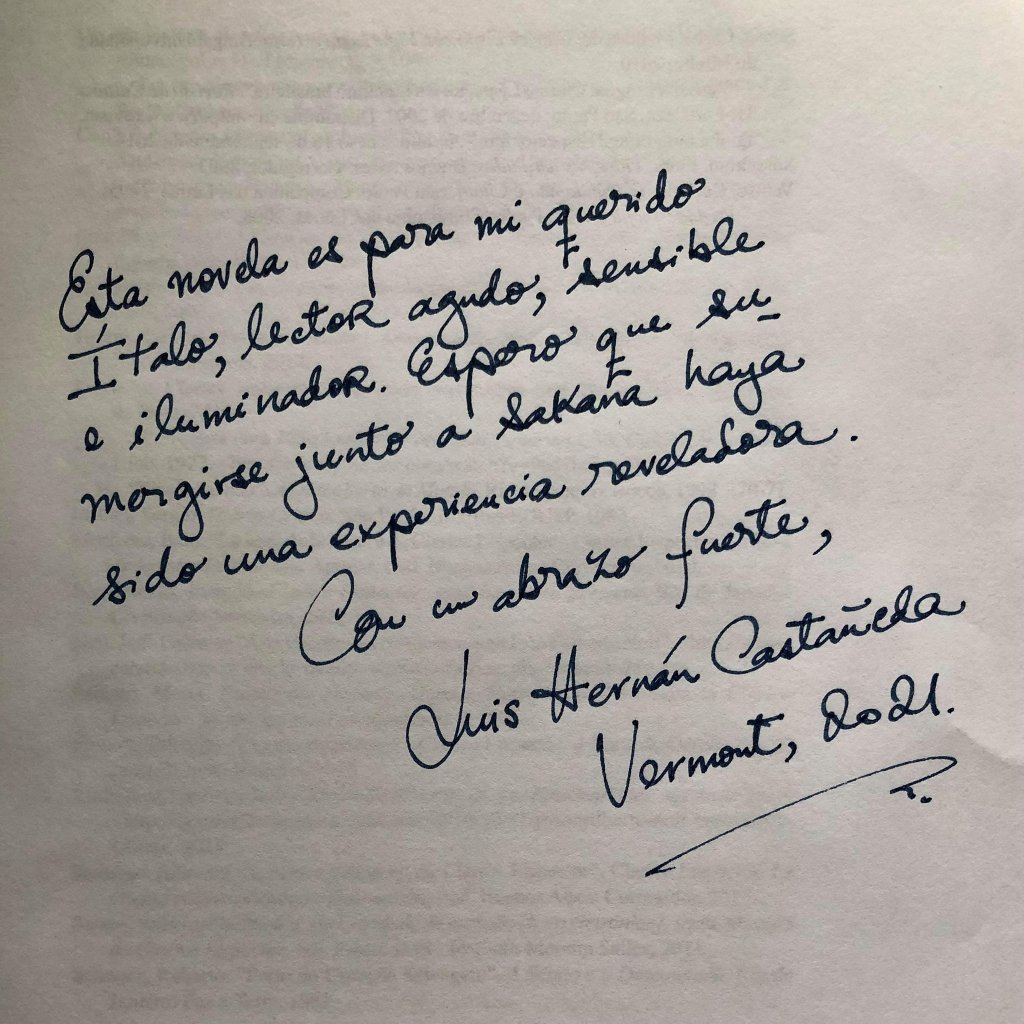 Esta novela es para mi querido
Ítalo, lector agudo, sensible
e iluminador. Espero que su-
mergirse junto a Sakaña haya
sido una experiencia reveladora.
Con un abrazo fuerte,
Luis Hernán Castañeda
Vermont, 2021.